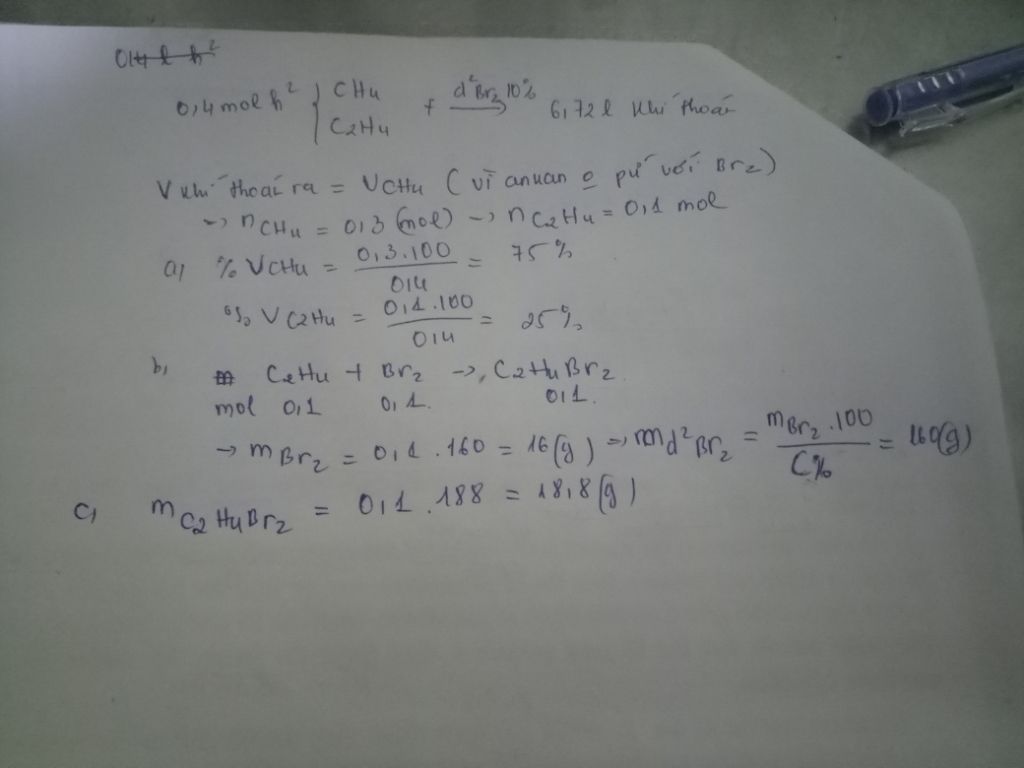 0,4 l h²
0,4 mol h² { CH4 C2H4 + d² Br2 10% → 6,72 l khí thoát
V khí thoát ra = VCH4 ( vì ankan o pứ với Br2 )
→ nCH4 = 0,3 (mol) → nC2H4 = 0,1 mol
a, % VCH4 = 0,3.100 / 0,4 = 75%
% VC2H4 = 0,1.100 / 0,4 = 25%
b, C2H4 + Br2 → C2H4Br2
mol 0,1 0,1. 0,1.
→ mBr2 = 0,1.160 = 16(g) → md²Br2 = mBr2.100 / C% = 160(g)
c, mC2H4Br2 = 0,1.188 = 18,8(g)